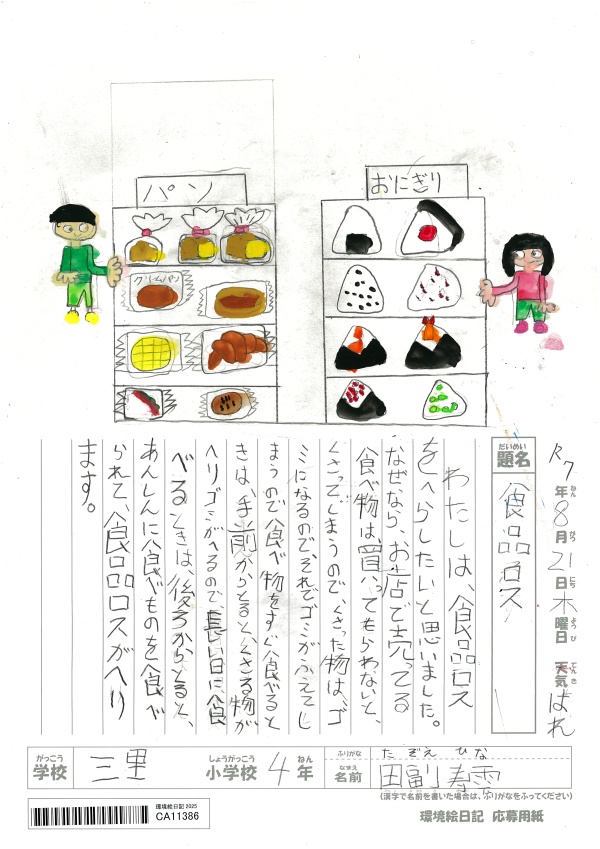 パン
おにぎり
クリームパン
R7年8月21日木曜日 天気はれ
ねん がつ にち ようび てんき
だいめい
題名
食品ロス
わたしは、食品ロス
をへらしたいと思いました。
なぜなら、お店で売ってる
食べ物は、買ってもらわないと、
くさってしまうので、くさった物は、ゴ
ミになるので、それでゴミがふえてし
まうので食べ物をすぐ食べると
きは、手前からとると、くさる物が
ヘリゴミがへるので、長い日に食
べるときは、後ろからとると、
あんしんに食べものを食べ
られて、食品ロスがへり
ます。
がっこう しょうがっこう ねん
学校 三里 小学校 4年
ふりがな たぞえ ひな
なまえ
名前 田副 寿雫
(漢字で名前を書いた場合は、ふりがなをふってください)
環境絵日記 2025
CA11386
環境絵日記 応募用紙